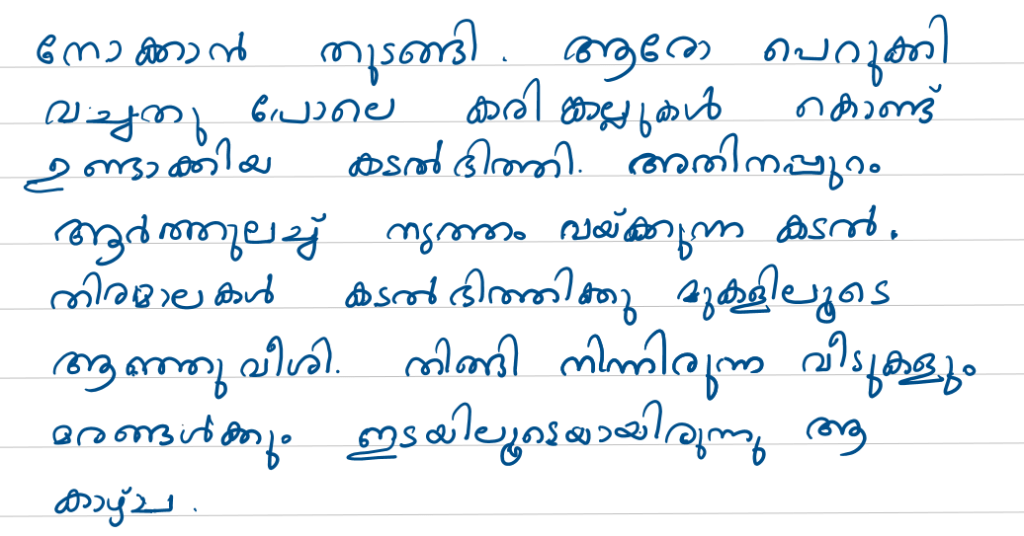 നോക്കാൻ തുടങ്ങി. ആരോ പെറുക്കി
വച്ചതു പോലെ കരിങ്കല്ലുകൾ കൊണ്ട്
ഉണ്ടാക്കിയ കടൽഭിത്തി. അതിനപ്പുറം
ആർത്തുലച്ച് നൃത്തം വയ്ക്കുന്ന കടൽ.
തിരമാലകൾ കടൽഭിത്തിക്കു മുകളിലൂടെ
ആഞ്ഞുവീശി. തിങ്ങി നിന്നിരുന്ന വീടുകളും
മരങ്ങൾക്കും ഇടയിലൂടെയായിരുന്നു ആ
കാഴ്ച.